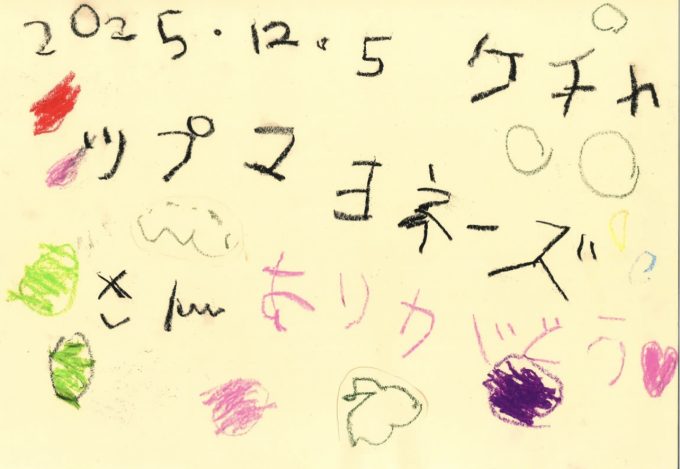 2025.12.5 ケチャ
ップマヨネーズ
さん ありがとう